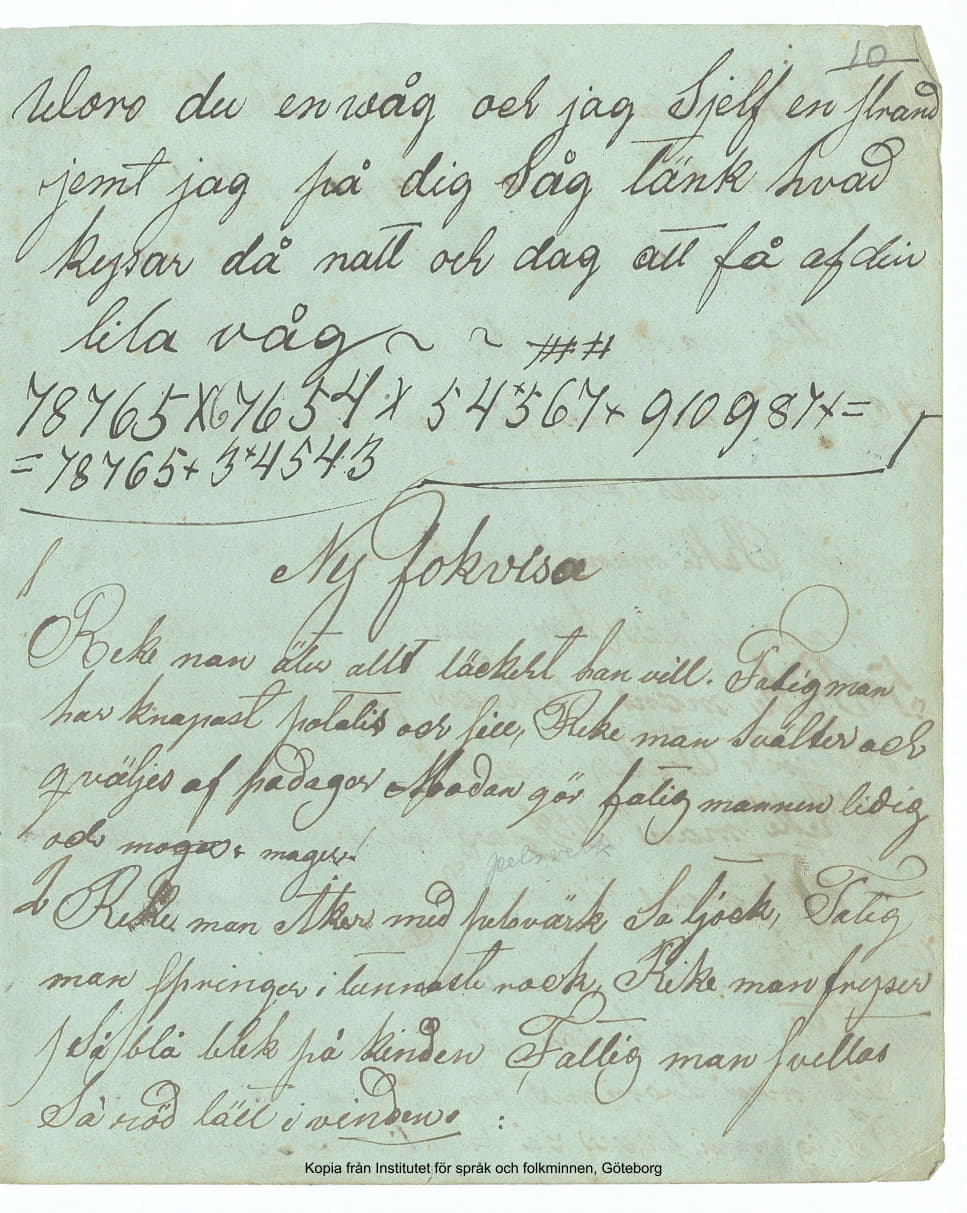 10
Woro du en wåg och jag Sjelf en strand
jemt jag på dig Såg tänk hvad
kysar då natt och dag att få af din
lila våg ~ ~ ## #
78765 X 67654 X 54*567+ 910987+=
= 78765+ 3+4543
1
Ny fokvisa
Reke man äter allt läckert han vill. Fatig man
har knapast potatis och sill, Reke man Svälter och
qväljes af podager Maadan gör fatig mannen lidig
och moger. mager.
pelsverk
2 Reke man Åker med pelsvärk Så tjock, Fatig
man springer i tunnaste rock, Rike man fryser
Så blå blek på kinden Fattig man svettas
Så röd lätt i vinden. :
Kopia från Institutet för språk och folkminnen, Göteborg